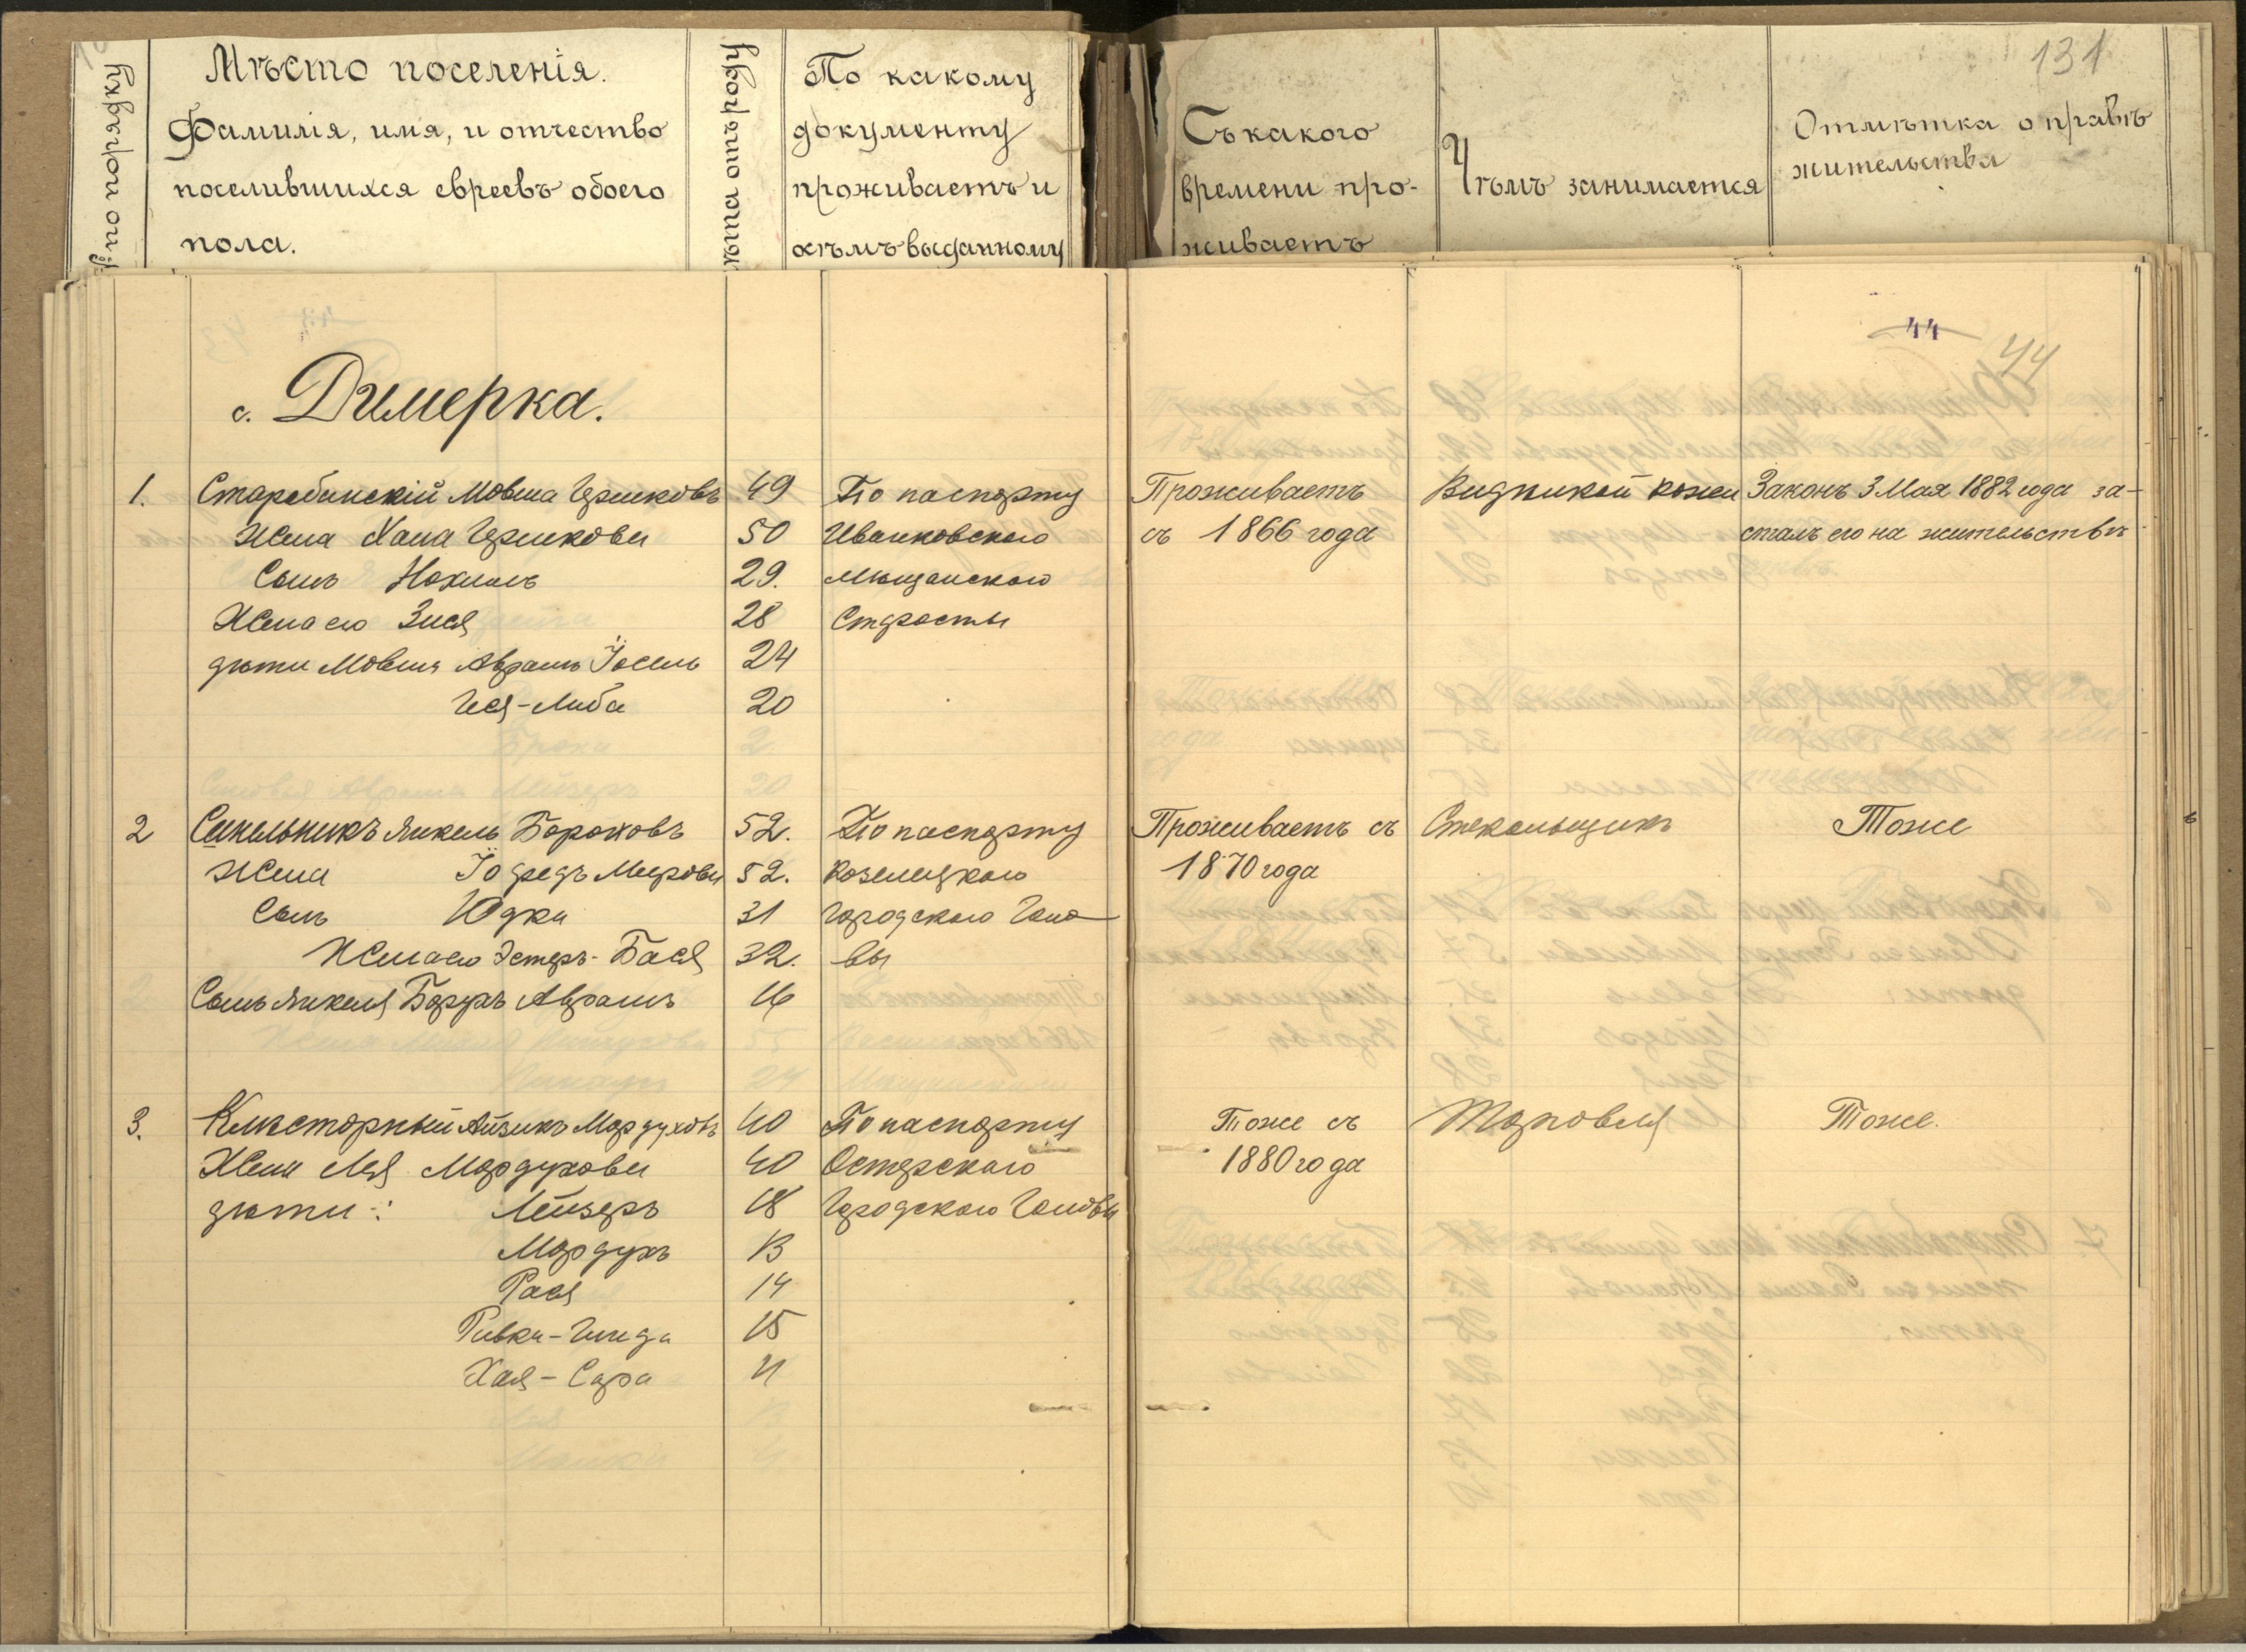 131
№ по порядку
Мѣсто поселенія.
Фамилія, имя, и отчество
поселившихся евреевъ обоего
пола.
лѣта отъ роду
По какому
документу
проживаетъ и
кѣмъ выданному
Съ какого
времени про-
живаетъ
Чѣмъ занимается
Отмѣтка о правѣ
жительства
44
44
с. Димерка.
1. Старобинскій Мовша Гершковъ 49 По паспорту Проживаетъ кожи Законъ 3 Мая 1882 года за-
Жена Хана Гершкова 50 Иванковскаго съ 1866 года сталъ его на жительствѣ
Сынъ Нохимъ 29. Мѣщанскаго
Жена его Зися 28 Старосты
дѣти Мовши Аврамъ Іосель 24
Гся-Либа 20
2 Синельникъ Янкель Бороховъ 52. По паспорту Проживаетъ съ Стекольщикъ Тоже
Жена 52. Козелецкаго 1870 года
Сынъ Юдка 31 Городского Голо-
Жена его Эстеръ-Бася 32. вы
Сынъ Янкеля Борухъ Аврамъ 16
3. Клигсторный Айзикъ Мордуховъ 40 По паспорту Тоже съ Торговля Тоже.
Жена Лея Мордухова 40 Остерскаго 1880 года
дѣти: Лейзеръ 18 Городского Головы
Мордухъ 13
Рася 14
Ривка-Гинда 15
Хая-Сара 11